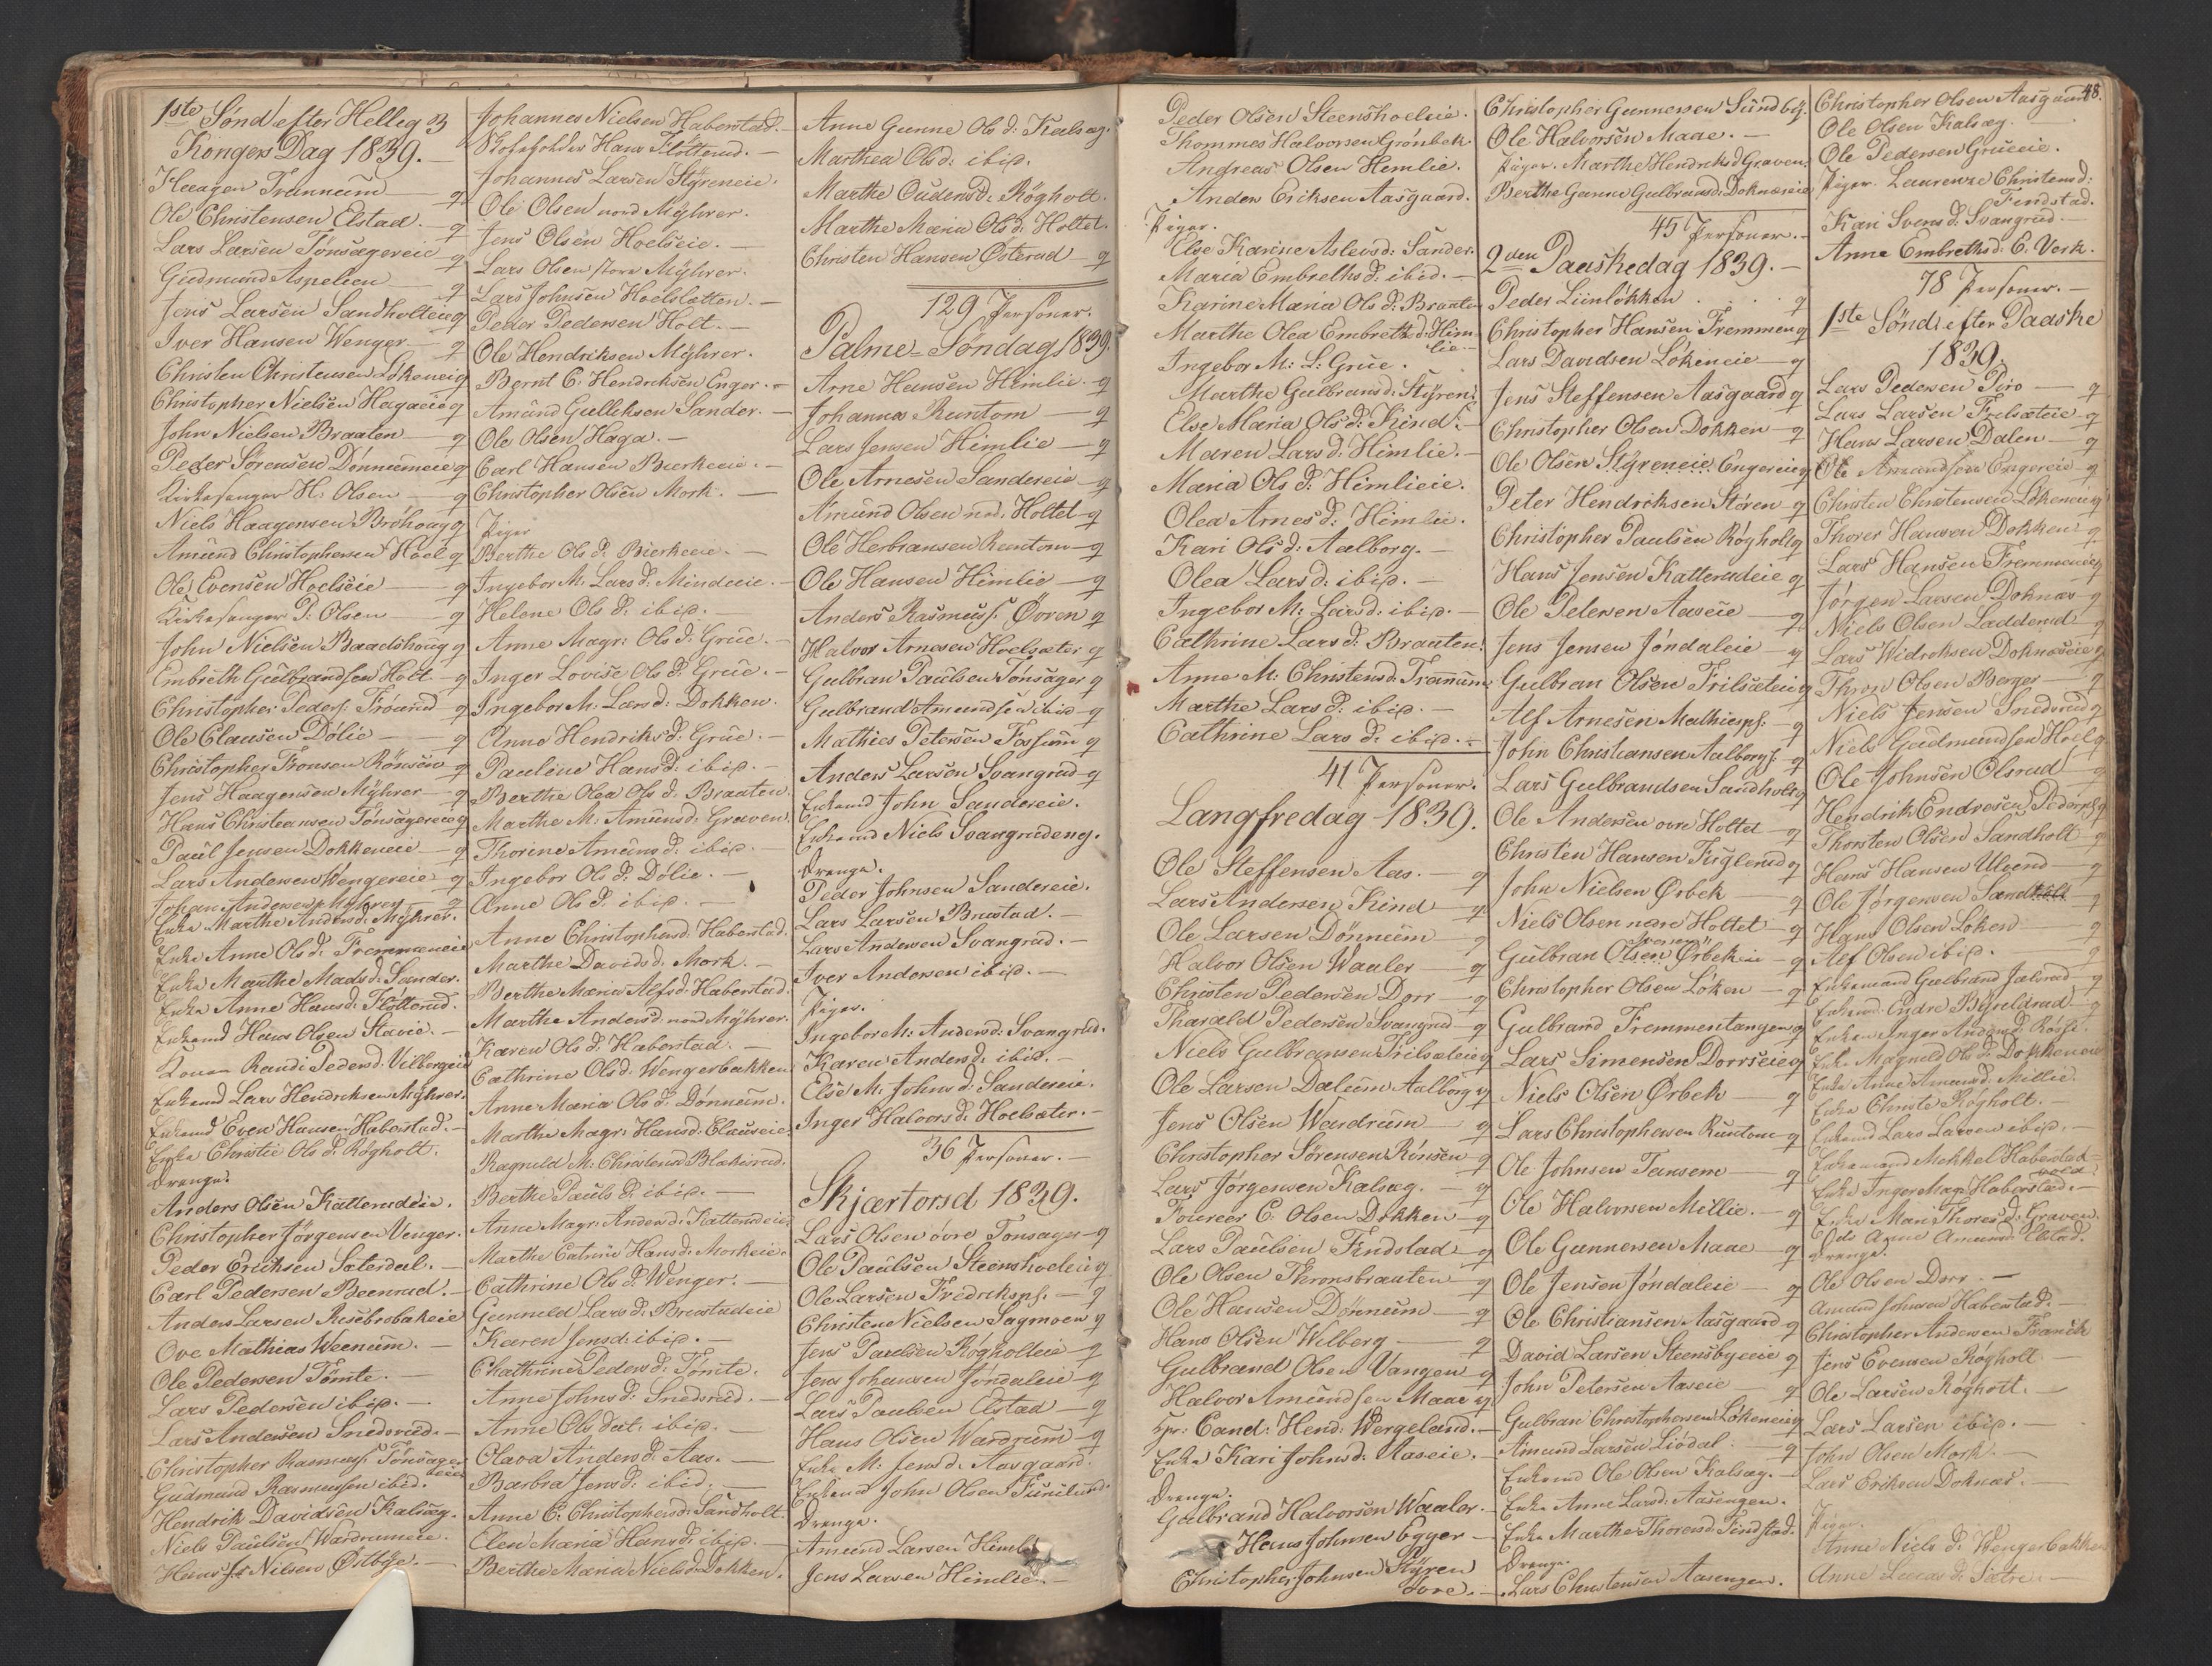 1ste Sønd. efter Hellig 3
Kongers Dag 1839. —
Haagen Trannum — q
Ole Christensen Elstad. — q
Lars Larsen Tønsagereie q
Gudmund Aspelien — q
Jens Larsen Sandholteie q
Iver Hansen Wenger — q
Christen Christensen Løkeneie q
Christopher Nielsen Hagaeie q
John Nielsen Braaten — q
Peder Sørensen Dønnumeie q
Kirkesanger H. Olsen — q
Niels Haagensen Brøhoug q
Amund Christophersen Hoel q
Ole Evensen Hoelseie — q
Kirkesanger P. Olsen — q
John Nielsen Baadshoug q
Embreth Gulbrandsen Holt — q
Christopher Peders. Frøurud — q
Ole Clausen Dølie — q
Christopher Tronsen Rønsen q
Jens Haagensen Mÿhrer — q
Hans Christiansen Tønsagereie q
Paul Jensen Dokkeneie — q
Lars Andersen Wengereie q
Johan Andersen Mÿhrer — q
Enke Marthe Andersd. Mÿhrer.
Enke Anne Ols d. Fremmeneie
Enke Marthe Madsd. Sander.
Enke Anne Hansd. Fløtterud.
Enkemd Hans Olsen Stavie. —
Konen Randi Pedersd. Vilbergeie
Enkemd Lars Hendriksen Mÿhrer.
Enkemd Even Hansen Haberstad. —
Enke Christie Ols d. Røgholt.
Drenge.
Anders Olsen Katterudeie.
Christopher Jörgensen Venger.
Peder Eriksen Sæterdal. —
Carl Pedersen Beenrud. —
Anders Larsen Risebrobakeie
Ove Mathias Weenum. —
Ole Pedersen Tømte. —
Lars Pedersen ibid. —
Lars Andersen Snedsrud. —
Christopher Rasmuss. Tønsager
eie
Gudmund Rasmussen ibid.
Hendrik Davidsen Kalsæg.
Niels Paulsen Wardrumeie.
Hans Nilsen Østbÿe. —
Johannes Nielsen Haberstad. —
Skoleholder Hans Fløtterud. —
Johannes Larsen Stÿreneie.
Ole Olsen nord Mÿhrer.
Jens Olsen Hoelseie. —
Lars Olsen store Mÿhrer.
Lars Johnsen Hoelslætten. —
Peder Pedersen Holt. —
Ole Hendriksen Mÿhrer.
Bernt C. Hendriksen Enger. —
Amund Gulleksen Sander. —
Ole Olsen Haga. —
Carl Hansen Bierkeeie. —
Christopher Olsen Mork. —
Piger
Berthe Ols d. Bierkeeie. —
Ingebor M. Lars d. Mindeeie. —
Helene Ols d. ibid. —
Anne Magr. Ols d. Grue. —
Inger Lovise Ols d. Grue. —
Ingebor M. Lars d. Dokken.
Anne Hendriks d. Grue. —
Pauline Hans d. ibid. —
Berthe Olea Ols d. Braaten.
Marthe M. Amunsd. Graven.
Thorine Amunsd. ibid. —
Ingebor Ols d. Dølie. —
Anne Ols d. ibid. —
Anne Christophersd. Haberstad.
Marthe Davids d. Mork. —
Berthe Maria Alfsd. Haberstad.
Marthe Andersd. nord Mÿhrer.
Karen Ols d. Haberstad. —
Cathrine Ols d. Wengerbakken
Anne Maria Ols d. Dønnum.
Marthe Magr. Hansd. Clauseie.
Ragnild M. Christensd. Blakerud.
Berthe Pauls d. ibid. —
Anne Magr. Andersd. Katterudeie.
Marthe Catrine Hansd. Morkeie.
Cathrine Ols d. Wenger. —
Gunnild Lars d. Brustadeie
Karen Jensd. ibid. —
Chathrine Peders d. Tømte.
Anne Johns d. Snedsrud. —
Anne Ols dat. ibid. —
Olava Anders d. Aas. —
Barbra Jens d. ibid. —
Anne C. Christophersd. Sandholt.
Elen Maria Hansd. ibid. —
Berthe Maria Nielsd. Dokken.
Anne Gunne Ols d. Kalsæg.
Marthea Ols d. ibid.
Marthe Oudensd. Røgholt.
Marthe Maria Ols d. Holtet.
Christen Hansen Østerud — q
129 Personer.
Palme-Søndag 1839.
Arne Hansen Himlie. — q
Johannes Runtom — q
Lars Jensen Himlie — q
Ole Arnesen Sandereie — q
Amund Olsen ned. Holtet — q
Ole Herbransen Remtom — q
Ole Hansen Himlie — q
Anders Rasmuss. Øvren q
Halvor Arnesen Hoelsæter q
Gulbran Paulsen Tønsager q
Gulbrand Amundsen ibid — q
Mathies Petersen Fossum q
Anders Larsen Svangrud — q
Enkemd John Sandereie.
Enkemd Niels Svangrudeng.
Drenge.
Peder Johnsen Sandereie.
Lars Larsen Brustad. —
Lars Andersen Svangrud. —
Iver Andersen ibid. —
Piger.
Ingebor M. Andersd. Svangrud.
Karen Anders d. ibid. —
Else M. Johns d. Sandereie.
Inger Halvors d. Hoelsæter. —
36 Personer. —
Skjærtorsd 1839.
Lars Olsen øvre Tonsager — q
Ole Paulsen Steenshoeleie q
Ole Larsen Fredrikspl. — q
Christen Nielsen Sagmoen q
Jens Paulsen Røgholteie — q
Jens Johansen Jøndaleie — q
Lars Paulsen Elstad — q
Hans Olsen Wardrum — q
Enke M. Jens d. Aasgaard.
Enkemd John Olsen Furulund.
Drenge.
Amund Larsen Himlie
Jens Larsen Himlie. —
48.
Peder Olsen Steenshoeleie.
Thommes Halvorsen Grønbek.
Andreas Olsen Hemlie.
Anders Eriksen Aasgaard.
Piger.
Else Karine Aslevsd. Sander.
Maria Embreths d. ibid. —
Karine Maria Ols d. Braaten
Marthe Olea Embrethsd. Him
lie. —
Ingebor M. L. Grue.
Marthe Gulbransd. Stÿren.
Else Maria Ols d. Kind. —
Maren Lars d. Himlie. —
Maria Ols d. Himlieie.
Olea Arnes d. Himlie.
Kari Ols d. Aalborg. —
Olea Lars d. ibid. —
Ingebor M. Lars d. ibid. —
Cathrine Lars d. Braaten.
Anne M. Christensd. Trannum.
Marthe Lars d. ibid. —
Cathrine Lars d. ibid. —
41 Personer.
Langfredag 1839.
Ole Steffensen Aas. — q
Lars Andersen Kind — q
Ole Larsen Dønnum — q
Halvor Olsen Waaler — q
Christen Pedersen Dorr — q
Tharald Pedersen Svangrud — q
Niels Gulbransen Frilsæteie q
Ole Larsen Dalum Aalborg q
Jens Olsen Wardrum — q
Christopher Sørensen Rønsen q
Lars Jørgensen Kalsæg. — q
Foureer C. Olsen Dokken — q
Lars Paulsen Findstad — q
Ole Olsen Thronsbraaten — q
Ole Hansen Dønnum — q
Hans Olsen Wilberg — q
Gulbrand Olsen Vangen q
Halvor Amundsen Maae q
Hr. Cand. Hend. Wergeland. —
Enke Kari Johns d. Aaseie. —
Drenge.
Gulbrand Halvorsen Waaler. —
Hans Johnsen Egger —
Christopher Johnsen Stÿren
Tore. —
Christopher Gunnersen Sundbÿ.
Ole Halvorsen Maae. —
Piger. Marthe Hendriksd Graven.
Berthe Gunne Gulbransd. Doknæseie
45 Personer. —
2den Paaskedag 1839. —
Peder Liinløkken . . . q
Christopher Hansen Fremmen q
Lars Davidsen Lökeneie — q
Jens Steffensen Aasgaard q
Christopher Olsen Dokken — q
Ole Olsen Stÿreneie Engereie q
Peter Hendriksen Støren — q
Christopher Paulsen Røgholt q
Hans Jensen Katterudeie q
Ole Petersen Aaseie — q
Jens Jensen Jøndaleie — q
Gulbran Olsen Frilsæteie q
Alf Arnesen Mathiespl. — q
John Christiansen Aalborgs. — q
Lars Gulbrandsen Sandholt q
Ole Andersen øvre Holtet — q
Christen Hansen Fuglerud q
John Nielsen Ørbek — q
Niels Olsen nedre Holtet — q
Gulbran Olsen Ørbekeie — q
Christopher Olsen Løken — q
Gulbrand Fremmentangen q
Lars Simensen Dorrseie q
Niels Olsen Ørbek — q
Lars Christophersen Runtom q
Ole Johnsen Tansem — q
Ole Halvorsen Millie. — q
Ole Gunnersen Maae — q
Ole Jensen Jøndaleie — q
Ole Christiansen Aasgaard q
David Larsen Steensbyeeie q
John Petersen Aaseie — q
Gulbran Christophersen Løkeneie q
Amund Larsen Liödal — q
Enkemd Ole Olsen Kalsæg. —
Enke Anne Larsd. Aasengen.
Enke Marthe Thoresd. Findstad.
Drenge.
Lars Christensen Aasengen.
Christopher Olsen Aasgaard
Ole Olsen Kalsæg.
Ole Pedersen Grueeie.
Piger. Laurenze Christensd.
Findstad.
Kari Svens d. Svangrud. —
Anne Embrethsd. E. Verk.
78 Personer. —
1ste Sønd. efter Paaske
1839.
Lars Pedersen Piro — q
Lars Larsen Frilsæteie — q
Hans Larsen Dalen — q
Ole Amundsen Engereie — q
Christen Christensen Løkeneie q
Thorer Hansen Dokken — q
Lars Hansen Fremmeneie q
Jørgen Larsen Doknæs — q
Niels Olsen Ladderud — q
Lars Widriksen Doknæseie q
Thron Olsen Berger — q
Niels Jensen Snedsrud q
Niels Gudmundsen Hoel q
Ole Johnsen Olsrud — q
Hendrik Endresen Pederspl q
Thorsten Olsen Sandholt — q
Hans Hansen Ulvend — q
Ole Jørgensen Sandholt — q
Hans Olsen Løken — q
Alf Olsen ibid. — q
Enkemand Gulbrand Julsrud — q
Enkemd. Endre Bÿnildrud — q
Enke Inger Andersd.
Enke Magnild Ols d. Dokkeneie
Enke Anne Amunsd. Millie.
Enke Christie Røgholt. —
Enkemd Lars Larsen ibid. —
Enkemand Mekkel Haberstad
Enke Inger Magr. Haberstad. —
Enke Mari Thores d. Graven.
Anne Amund Elstad.
Drenge.
Ole Olsen Dorr. —
Amund Johnsen Haberstad. —
Christopher Andersen Franich
Jens Evensen Røgholt —
Ole Larsen Røgholt. —
Lars Larsen ibid. —
John Olsen Mork. —
Lars Eriksen Doknæs. —
Piger.
Anne Niels d. Wengerbakken
Anne Lucas d. Sætre. —